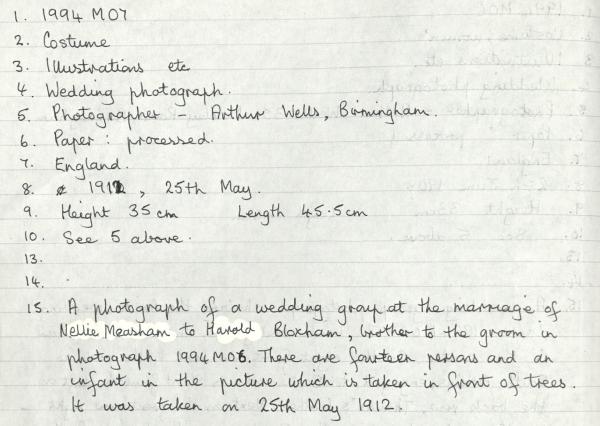 1. 1994 M07
2. Costume
3. Illustrations etc
4. Wedding photograph.
5. Photographer - Arthur Wells, Birmingham.
6. Paper : processed.
7. England.
8. 1912, 25th May.
9. Height 35cm Length 45.5cm
10. See 5 above.
13.
14.
15. A photograph of a wedding group at the marriage of
Nellie Measham to Harold Bloxham, brother to the groom in
photograph 1994M06. There are fourteen persons and an
infant in the picture which is taken in front of trees.
It was taken on 25th May 1912.